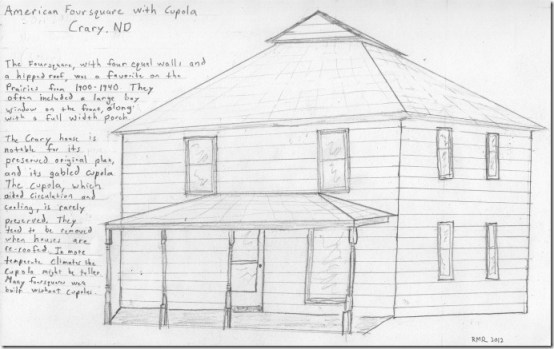 American Foursquare with Cupola
Crary, ND
The Foursquare, with four equal walls and
a hipped roof, was a favorite on the
Prairies from 1900-1940. They
often included a large bay
window on the front, along
with a full width porch.
The Crary house is
notable for its
preserved original plan,
and its gabled cupola
The cupola, which
aided circulation and
cooling, is rarely
preserved. They
tend to be removed
when houses are
re-roofed. In more
temperate climates the
cupola might be taller.
Many foursquares were
built without cupolas.
RMR 2012